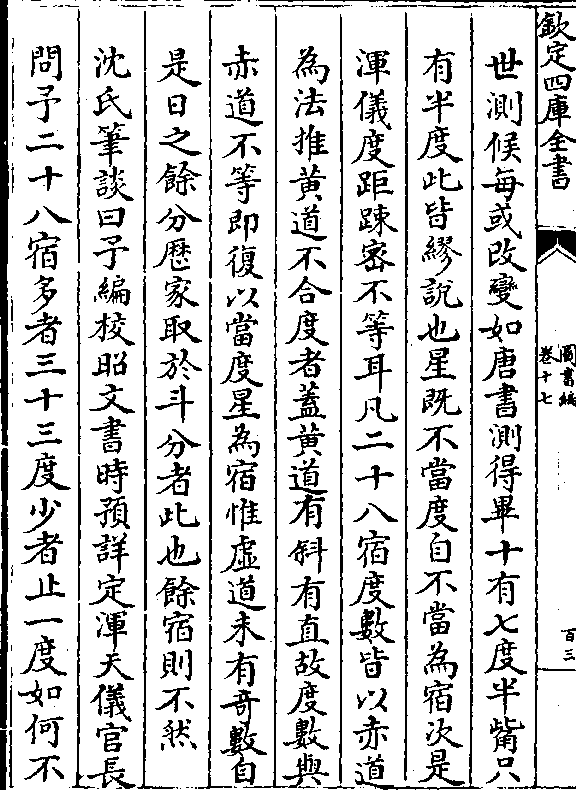 欽定四庫全書
圖書編
卷十七
百三
世測候每或改變如唐書測得畢十有七度半觜只
有半度此皆繆說也星既不當度自不當為宿次是
渾儀度距踈密不等耳凡二十八宿度數皆以赤道
為法推黄道不合度者蓋黄道有斜有直故度數與
赤道不等即復以當度星為宿惟虛道未有竒數自
是日之餘分歴家取於斗分者此也餘宿則不然
沈氏筆談曰予編校昭文書時預詳定渾天儀官長
問予二十八宿多者三十三度少者止一度如何不